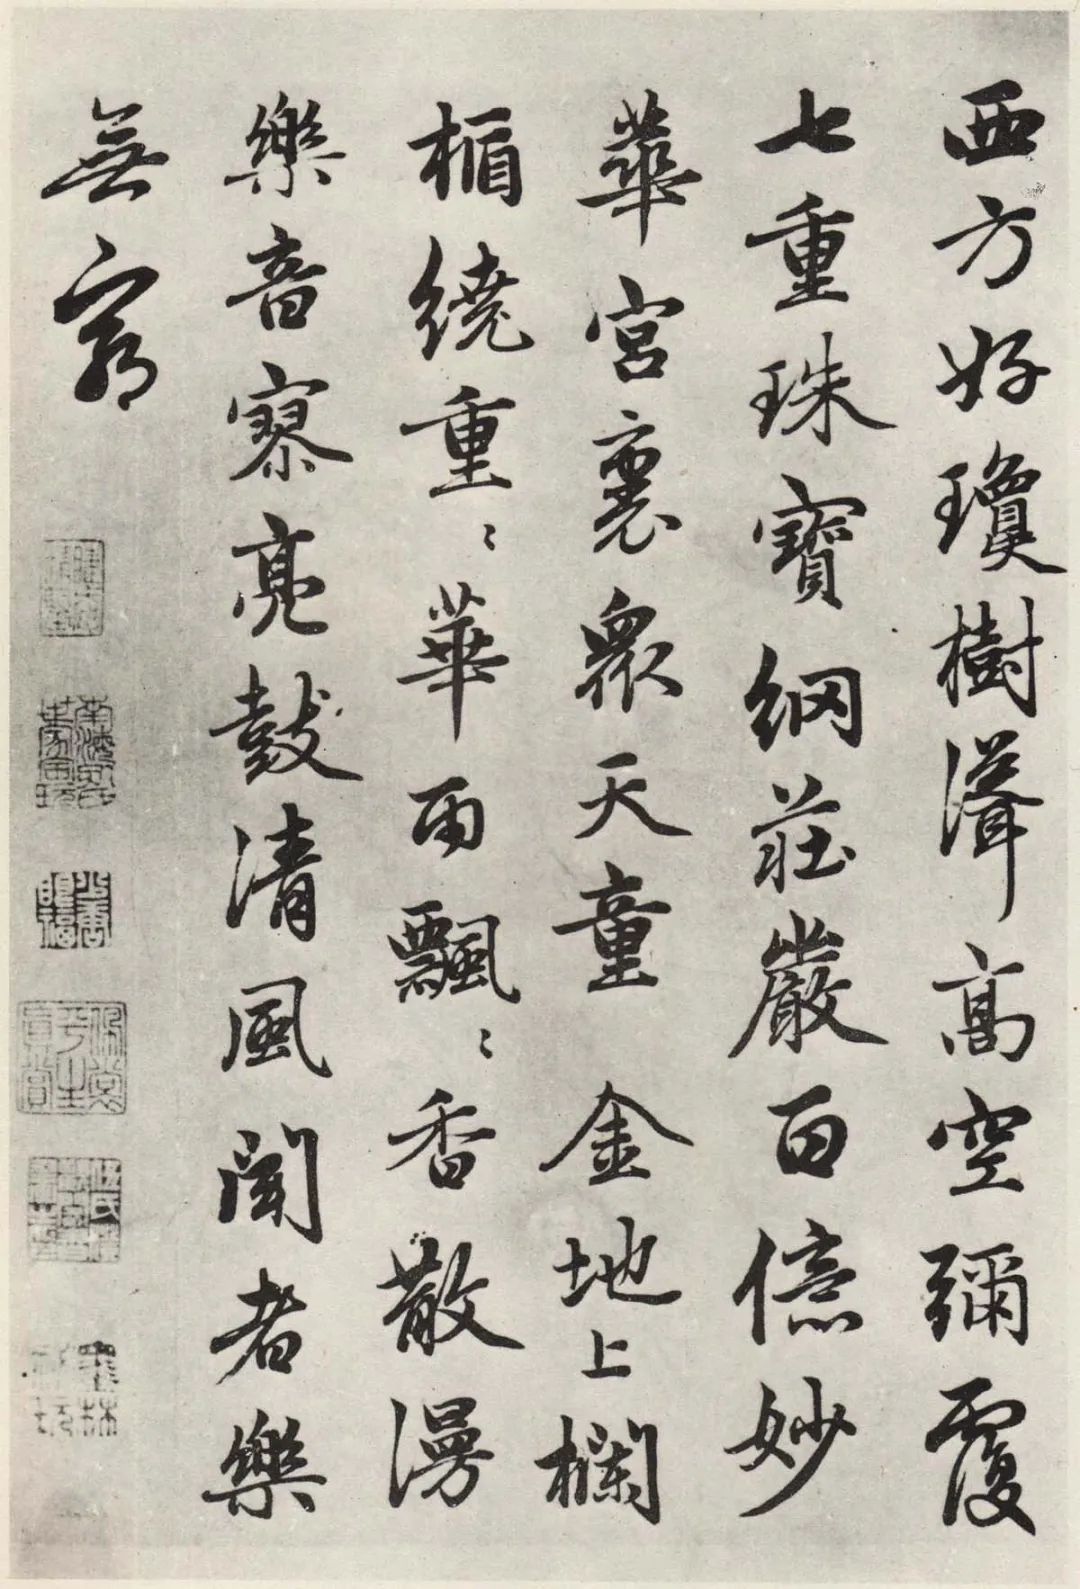 西方好瓊樹聳高空彌覆
七重珠寶網莊嚴百億妙
華宮裏衆天童 金地上欄
楯繞重〻華雨飄〻香散漫
樂音寥亮鼓清風聞者樂
無窮
墨林